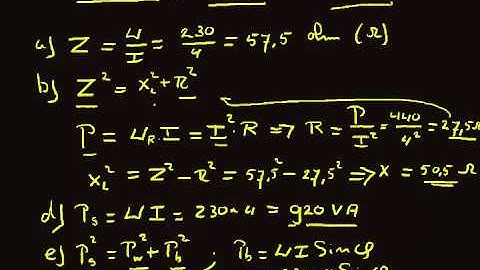 a) Z = U/I = 230/4 = 57,5 ohm (Ω)
b) Z² = X_L² + R²
P = U_R · I = I² · R => R = P/I² = 440/4² = 27,5Ω
X_L² = Z² - R² = 57,5² - 27,5² => X = 50,5 Ω
d) P_s = U I = 230 · 4 = 920 VA
e) P_s² = P_w² + P_b² ; P_b = U I Sin φ